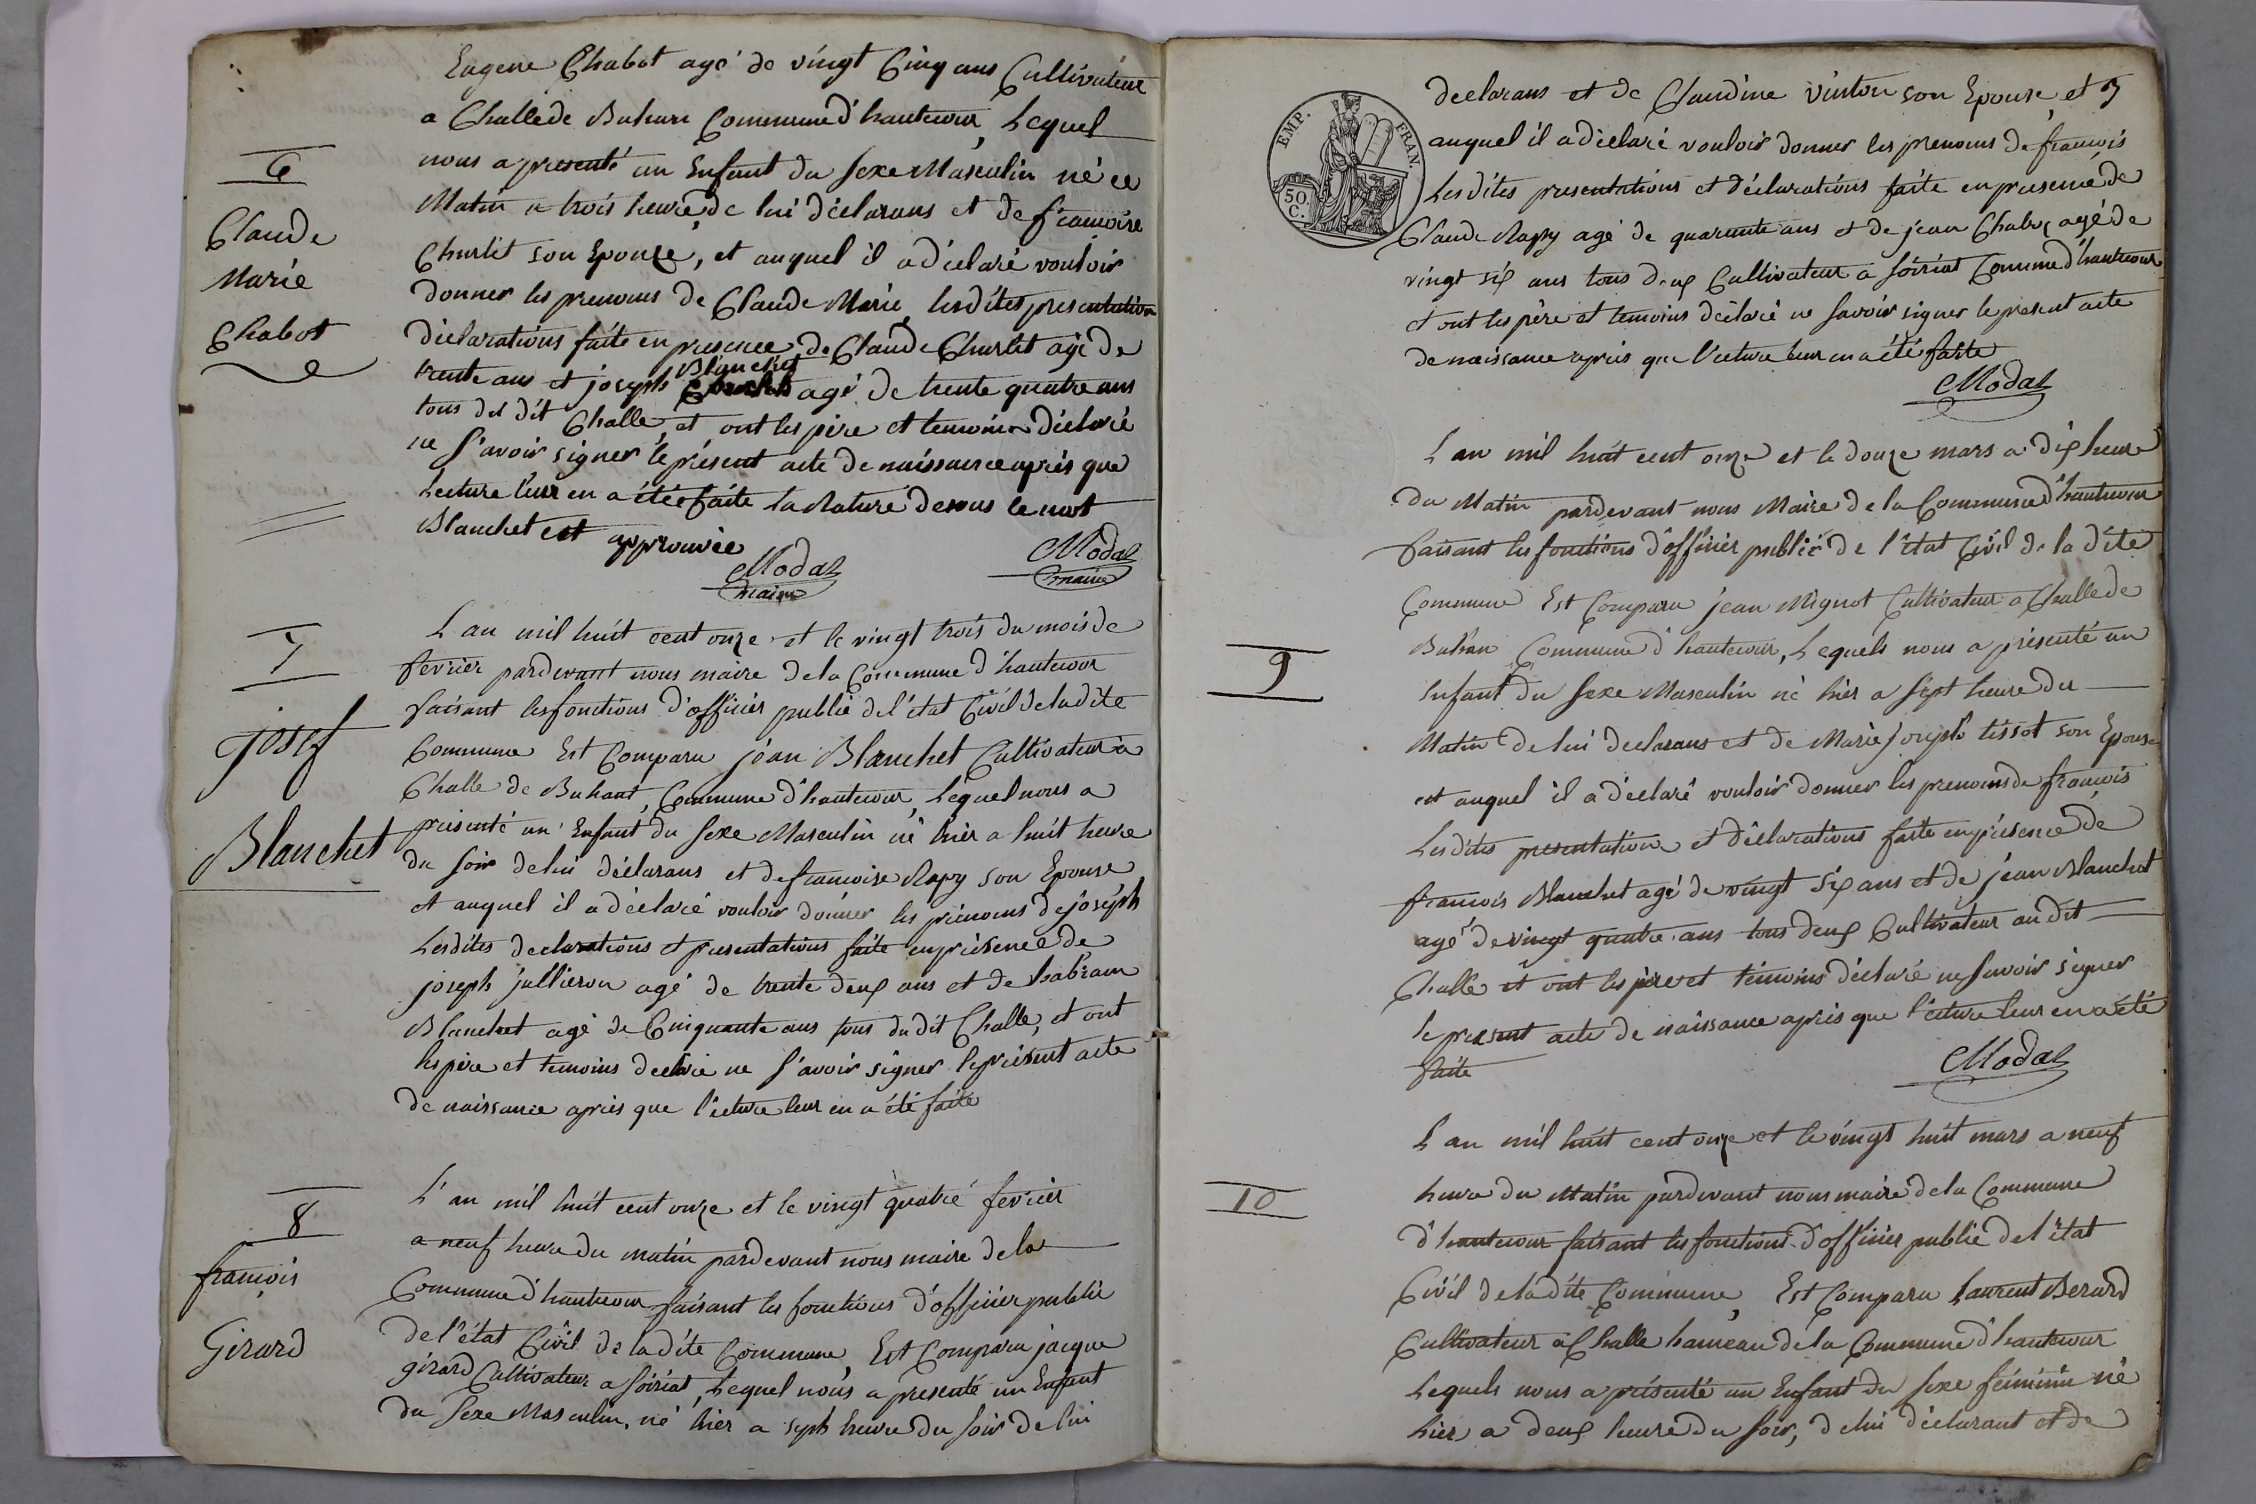 Eugene Chabot agé de vingt Cinq ans Cultivateur
a Challe de Buhan Commune d'hautecour, Lequel
6
nous a presenté un Enfant du Sexe Masculin né ce
Matin a trois heure de lui déclarans et de francoise
Claude
Charlet son Epouse, et auquel il a déclaré vouloir
Marie
donner les prenoms de Claude Marie, lesdites presentation
Chabot
déclarations faite en presence de Claude Charlet agé de
Blanchet
trente ans et joseph agé de trente quatre ans
tous du dit Challe, et ont les pere et temoins déclaré
ne S'avoir signer le présent acte de naissance après que
Lecture leur en a étée faite la Rature dessus le mot
Blanchet est approuvée
Modas Modas
maire maire
7
L'an mil huit cent onze et le vingt trois du mois de
fevrier pardevant nous maire de la Commune d'hautecour
faisant les fonctions d'officier public de l'état Civil de la dite
josef
Commune Est Comparu jean Blanchet Cultivateur a
Challe de Buhant, Commune d'hautecour, Lequel nous a
Blanchet
présenté un Enfant du Sexe Masculin né hier a huit heure
du Soir de lui déclarans et de francoise Rapy son Epouse
et auquel il a déclaré vouloir donner les prenoms de joséph
Lesdites declarations et presentations faite en présence de
joseph jullieron agé de trente deux ans et de habram
Blanchet agé de Cinquante ans tous du dit Challe, et ont
les père et temoins declaré ne S'avoir signer le présent acte
de naissance après que l'ecture leur en a été faite
8
L'an mil huit cent onze et le vingt quatre fevrier
a neuf heure du matin pardevant nous maire de la
françois
Commune d'hautecour faisant les fonctions d'officier public
Girard
de l'état Civil de la dite Commune, Est Comparu jacque
girard Cultivateur a Soiriat, Lequel nous a presenté un Enfant
du Sexe Masculin, né hier a syph heure du Soir de lui
EMP. FRAN.
50 C.
declarans et de Claudine Vinton son Epouse et
auquel il a déclaré vouloir donner les prenoms de françois
Lesdites presentations et déclarations faite en presence de
Claude Rapy agé de quarante ans et de jean Chabot agé de
vingt six ans tous deux Cultivateur a Soiriat Comune d'hautecour
et ont les père et temoins déclaré ne Savoir signer le présent acte
de naissance après que l'ecture leur en a été faite
Modas
L'an mil huit cent onze et le douze mars a dix heure
du Matin pardevant nous Maire de la Commune d'hautecour
faisant les fonctions d'officier public de l'état Civil de la dite
Commune Est Comparu jean Mignot Cultivateur a Challe de
9
Buhan Commune d'hautecour, Lequels nous a présenté un
Enfant du Sexe Masculin né hier a Sept heure du
Matin de lui declarans et de Marie joseph tissot son Epouse
et auquel il a déclaré vouloir donner les prenoms de françois
Lesdites presentations et déclarations faite en présence de
francois Blanchet agé de vingt Six ans et de jean Blanchet
agé de vingt quatre ans tous deux Cultivateur au dit
Challe et ont les père et témoins déclaré ne Savoir signer
le present acte de naissance après que l'ecture leur en a été
faite
Modas
L'an mil huit cent onze et le vingt huit mars a neuf
10
heure du Matin pardevant nous maire de la Commune
d'hautecour faisant les fonctions d'officier public de l'état
Civil de la dite Commune, Est Comparu Laurent Berard
Cultivateur a Challe hameau de la Commune d'hautecour
Lequels nous a présenté un Enfant du Sexe féminin né
hier a deux heure du Soir, de lui déclarant et de